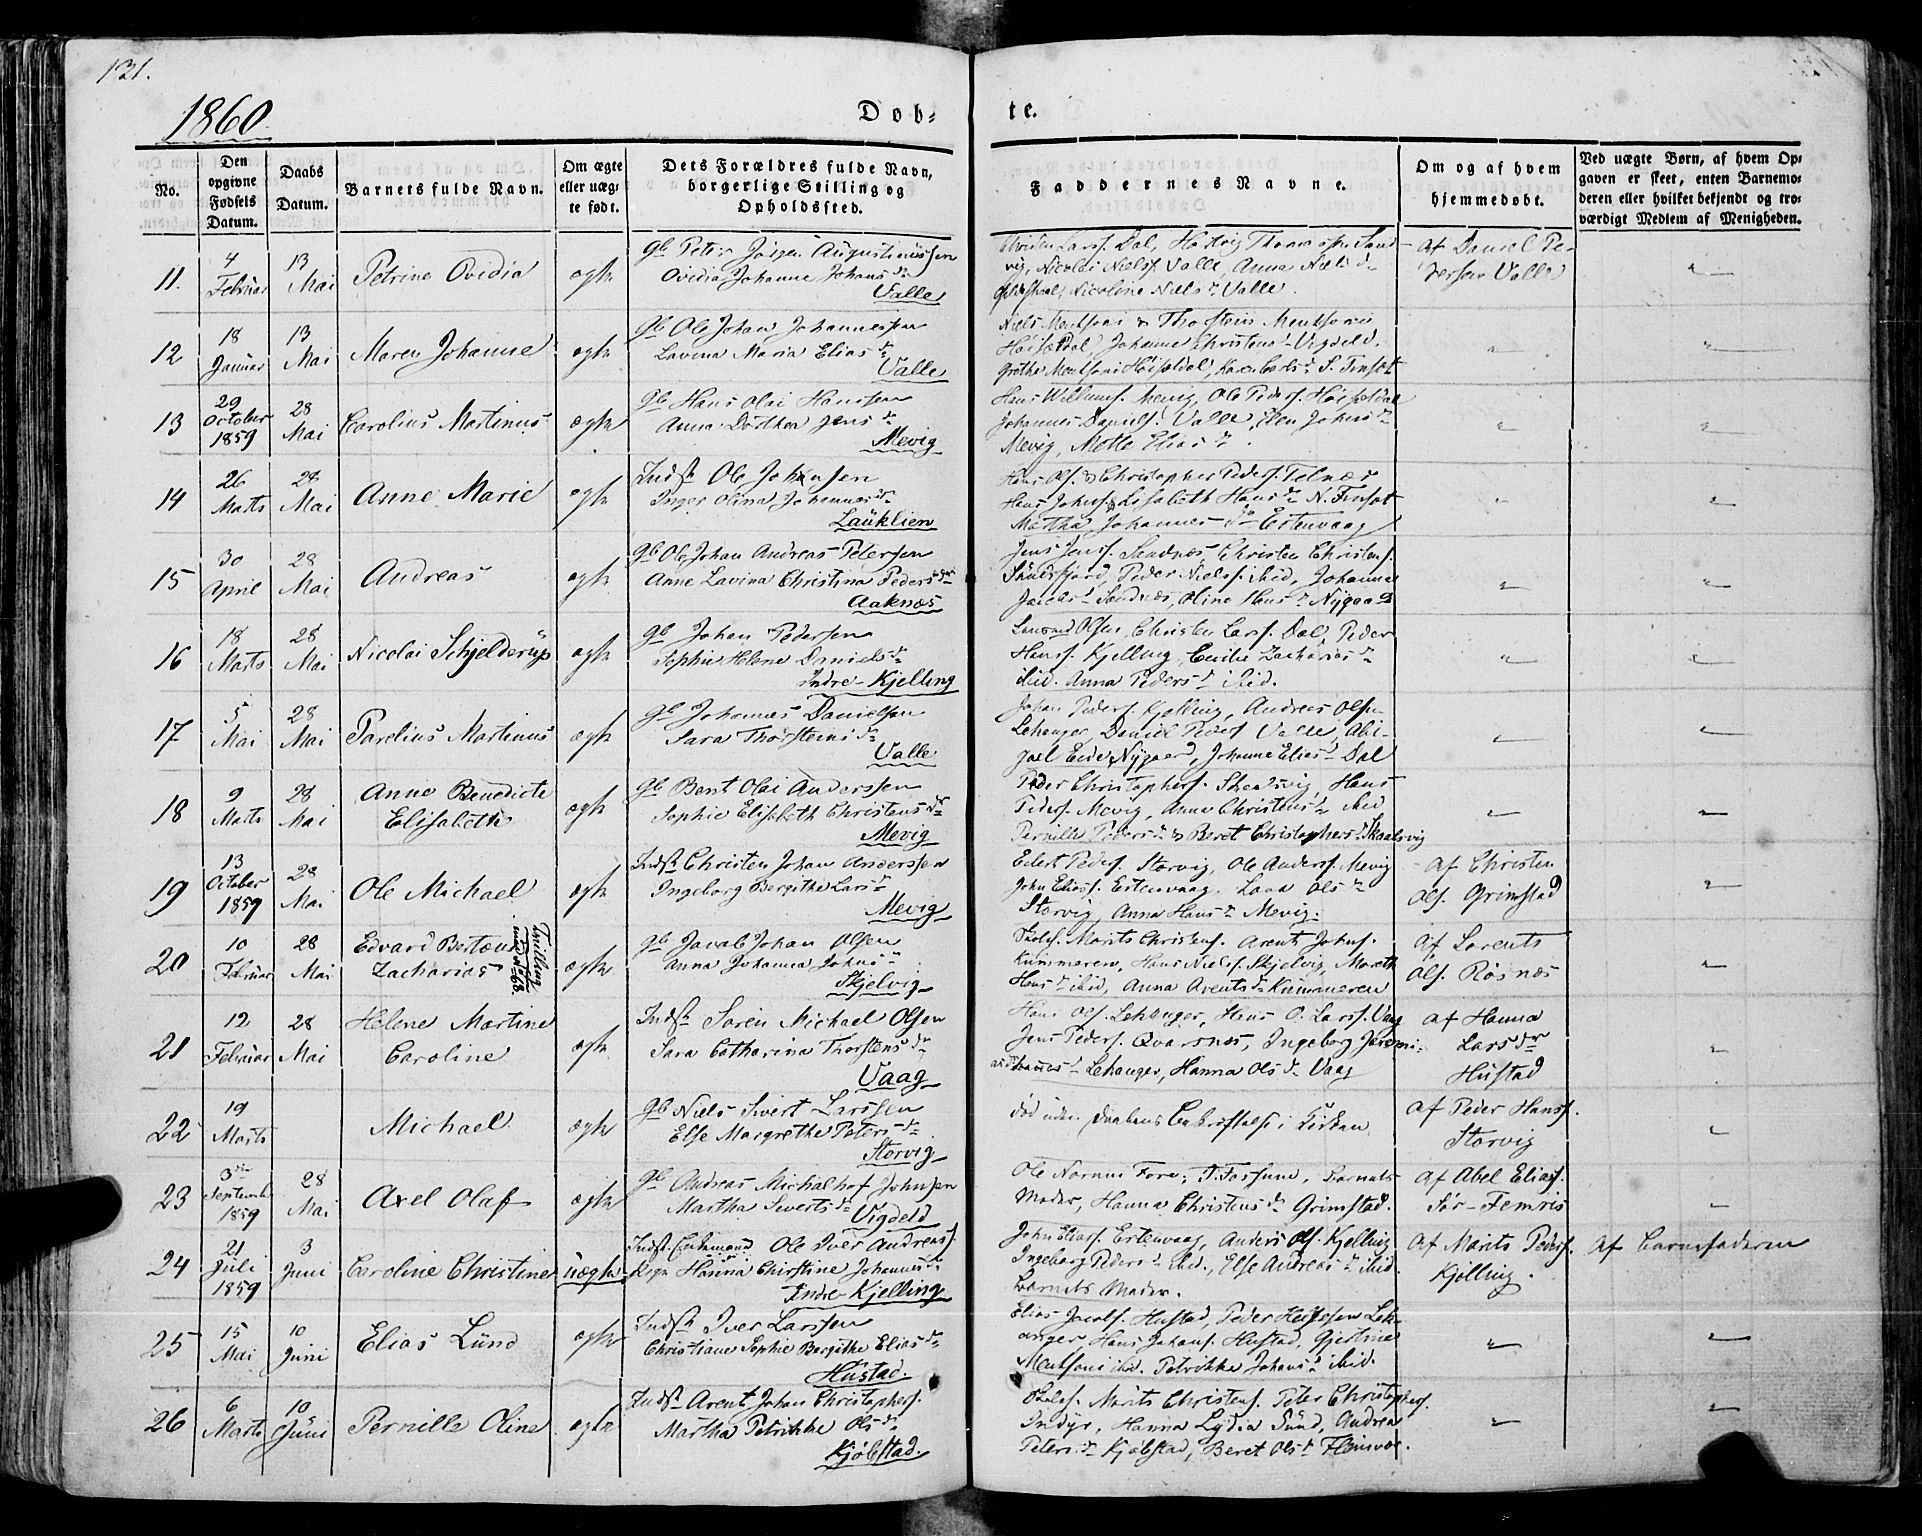 131.
1860.
Dob-
te.
No.
Den opgivne Fødsels Datum.
Daabs Datum.
Barnets fulde Navn.
Om ægte eller uæg- te født.
Dets Forældres fulde Navn, borgerlige Stilling og Opholdssted.
Faddernes Navne.
Om og af hvem hjemmedøbt.
Ved uægte Børn, af hvem Op- gaven er skeet, enten Barnemo- deren eller hvilket bekjendt og tro- værdigt Medlem af Menigheden.
11. 4 Februar 13 Mai Petrine Ovidia ægte
Gb Peter Jørgen Augustinussen
Ovidia Johanne Johans dr
Valle
Christen Larss. Dal, Hartvig Thomass. Sand-
vig, Nicolai Nielss. Valle, Anna Niels d
Nicoline Niels d Valle.
Af Daniel Pe-
dersen Valle
12 18 Januar 13 Mai Maren Johanne ægte
Gb Ole Johan Johannessen
Lavina Maria Elias d
Valle
Niels Mentsoni & Thorstein Mentsoni
Høiseldal, Johanne Christens d Vigdeld.
Grethe Mentsoni Høiseldal, S. Finset
13 29 October 1859 28 Mai Carolius Martinus ægte
Gb Hans Olai Hanssen
Anna Dorthea Jens d
Mevig
Hans Willums. Mevig, Ole Peders. Høiseldal
Johannes Daniels. Valle, Elen Johns d
Mevig, Mette Elias d.
14 26 Marts 28 Mai Anne Marie ægte
Indst Ole Johnsen
Inger Olina Johannes d
Lauklien
Hans Ols. & Christopher Peders. Telnæs
Hans Johns. Lisabeth Hans d N. Finset
Martha Johannes d Estenvaag
15 30 April 28 Mai Andreas ægte
Gb Ole Johan Andreas Petersen
Anne Lavina Christina Peders dr
Aaknæs
Jens Jenss. Sandnæs Christen Christens.
Peder Nielss. ibid, Johanna
Jacobs d Sandnæs, Oline Hans d Nygaard
16 18 Marts 28 Mai Nicolai Schjelderup ægte
Gb Johan Pedersen
Sophie Helene Daniels d
Indre-Kjelling
Olsen, Christen Larss. Dal, Peder
Hanss. Kjelling, Cecilie Zacharias d
ibid. Anna Peders d ibid.
17 5 Mai 28 Mai Parelius Martinus ægte
Gb Johannes Danielsen
Sara Thorsteins d
Valle
Johan Peders. Kjelling, Andreas Olsen
Lehanger, Daniel Peders Valle, Abi-
gael Eide Nygaard, Johanne Elias d Dal
18 9 Marts 28 Mai Anne Benedicte
Elisabeth ægte
Gb Bent Olai Anderssen
Sophie Elisabeth Christens dr
Mevig
Peder Christophers. Skaalsvig, Hans
Peders. Mevig, Anne Christens d ibid
Pernille Peders d & Beret Christophers d Skaalsvig
19 13 October 1859 28 Mai Ole Michael ægte
Indst Christen Johan Anderssen
Ingeborg Bergithe Lars d
Mevig
Eilert Peders. Storvig, Ole Anders. Mevig
John Eliass. Estenvaag. Lava Ols d
Storvig, Anna Hans d Mevig.
Af Christen
Ols. Grimstad
20 10 Februar 28 Mai Edvard Bertæus
Zacharias
Tvilling med No 68.
ægte
Gb Jacob Johan Olsen
Anna Johanna Johns d
Skjelvig
Skolel. Morits Christens. Arent Johns.
Kunmaren, Hans Niels. Skjelvig, Mareth
Hans d ibid, Anna Arents d Kunmaren
Af Lorents
Ols. Røsnæs
21 12 Februar 28 Mai Helene Martine
Caroline ægte
Indst Søren Michael Olsen
Sara Catharina Thorstens dr
Vaag
Hans Ols. Lehanger, Hans O. Larss. Vaag
Jens Peders. Qvarsnæs, Ingeborg Jeremi-
Lehanger, Hanna Ols d Vaag
Af Hanna
Lars dr
Hustad
22 19 Marts Michael ægte
Gb Niels Sivert Larssen
Else Margrethe Peters d
Storvig
død uden Daabens Bekræftelse i Kirken
Af Peder Hanss.
Storvig
23 3 Septemb 1859 28 Mai Axel Olaf ægte
Gb Andreas Michalhof Johnsen
Martha Siverts d
Vigdeld
Ole Normus Fore, T. Fossund, Barnets
Moder, Hanna Christens d Grimstad.
Af Abel Eliass.
Sør-Femris
24 21 Juli 1859 3 Juni Caroline Christine uægte
Indst. Enkemand Ole Iver Andreass.
Pigen Hanna Christine Johannes d
Indre-Kjelling
John Eliass. Estenvaag, Anders Ols. Kjelling
Ingeborg Peders d ibid., Else Andreas d ibid.
Barnets Moder.
Af Morits Peders.
Kjelling.
Af Barnefaderen
25 15 Mai 10 Juni Elias Lund ægte
Indst Iver Larssen
Christiane Sophie Bergithe Elias d
Hustad.
Elias Jacobs. Hustad, Peder Leh-
anger, Hans Johans. Hustad, Gjertine
Mentsoni ibid. Petrikke Johans d ibid.
26 6 Marts 10 Juni Pernille Oline ægte
Indst Arent Johan Christophers.
Martha Petrikke Ols d
Kjøbstad.
Skolel. Morits Christens. Peter Christophers.
Indyr, Hanna Lydia Sund, Andrea
Peters d Kjøbstad, Beret Ols d Fleinsvæ.